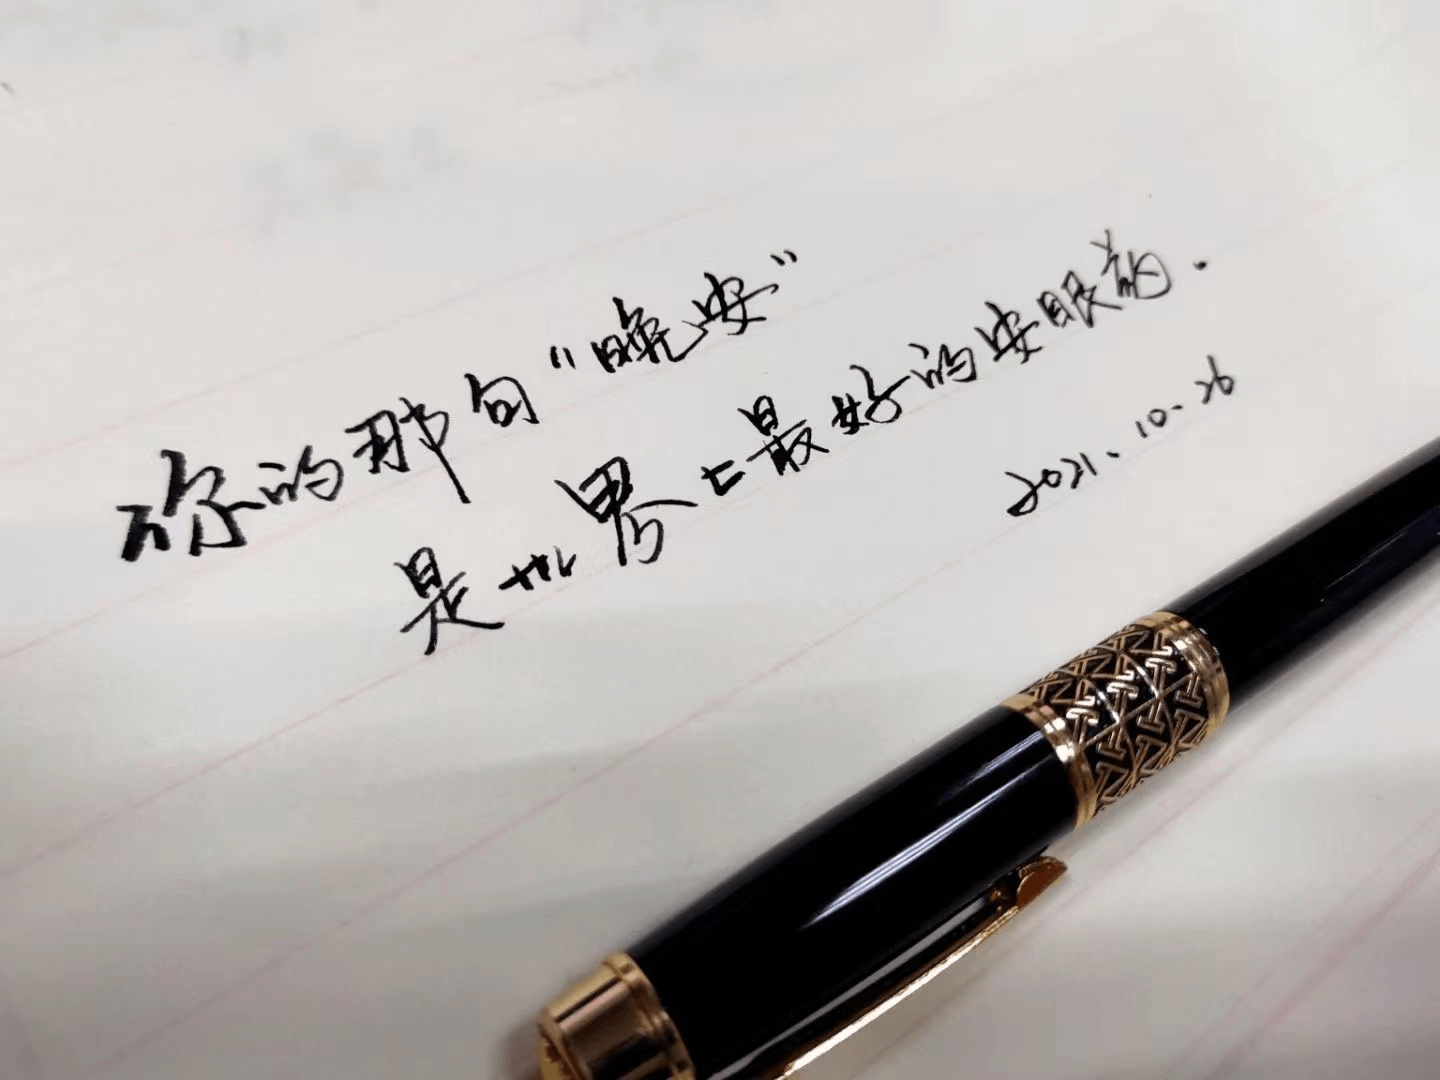 你的那句“晚安”
是世界上最好的安眠药.
2021.10.26